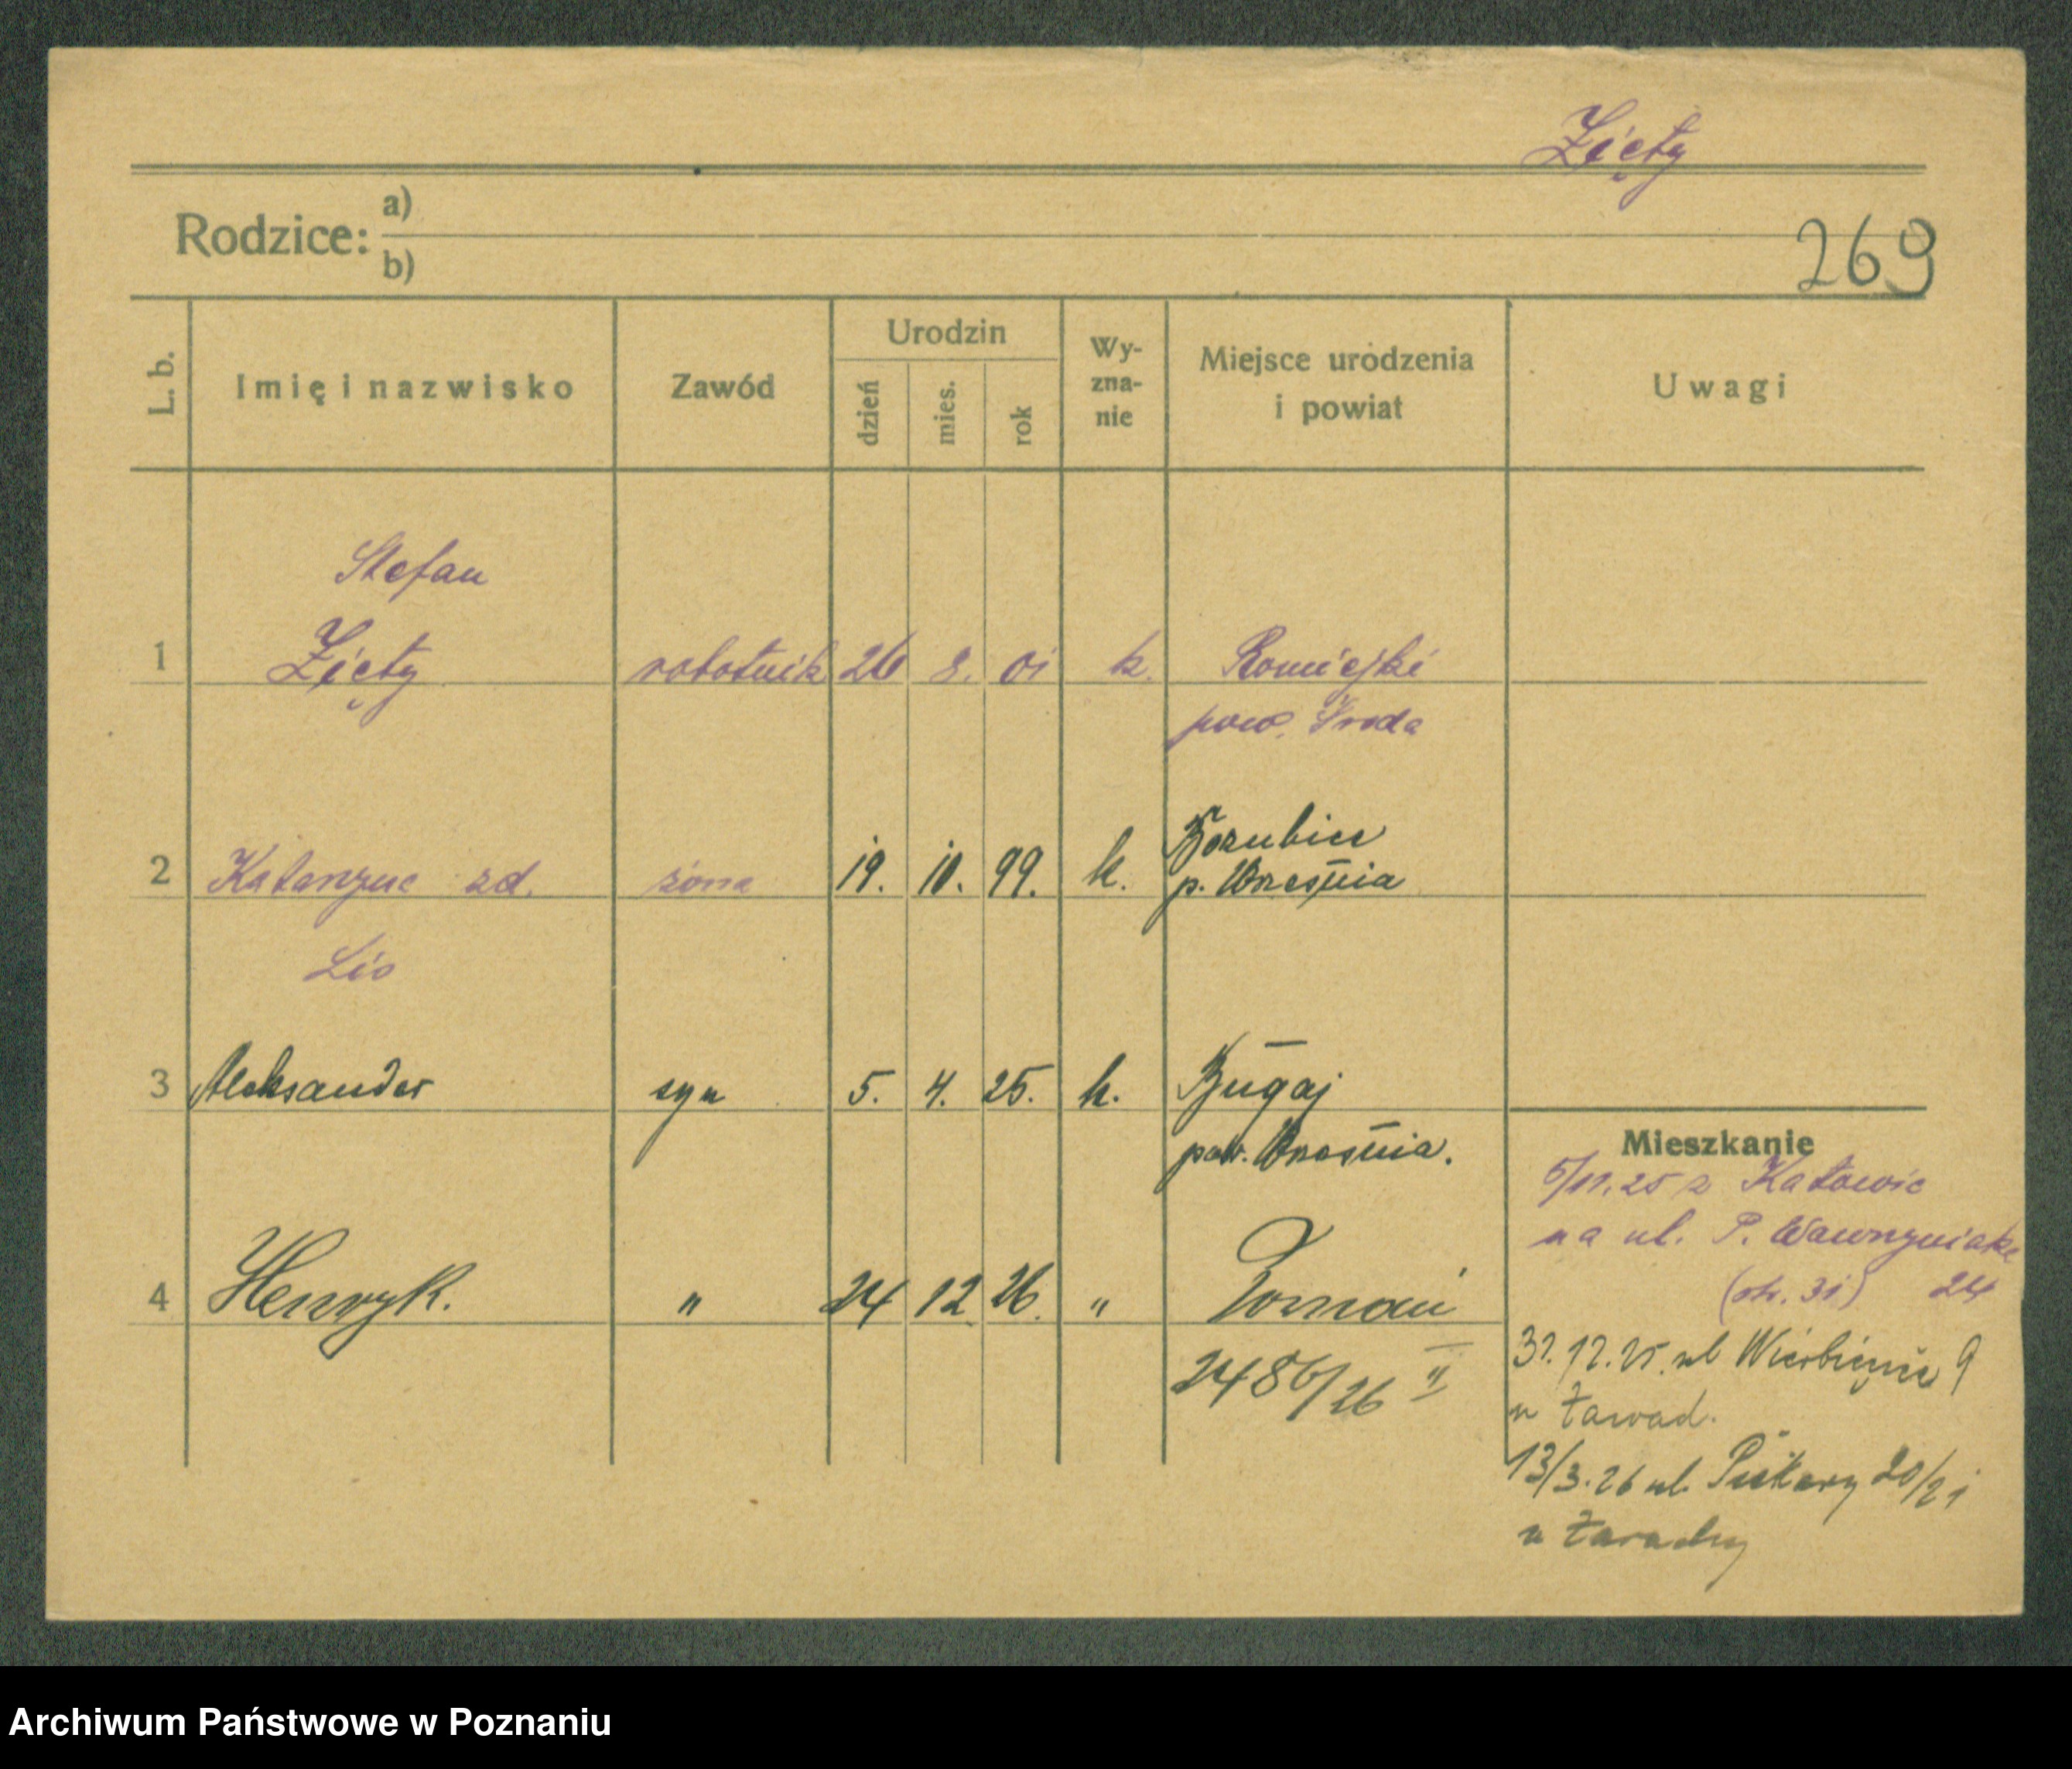 Zięty
Rodzice: a)
b)
269
L. b.
Imię i nazwisko
Zawód
Urodzin
dzień
mies.
rok
Wy-
zna-
nie
Miejsce urodzenia
i powiat
Uwagi
Stefan
1 Zięty robotnik 26 8. 01 k. Romiejki
pow. Środa
2 Katarzyna zd. żona 19. 10. 99. k.
p. Września
Lis
3 Aleksander syn 5. 4. 25. k. Bugaj
pow. Września.
4 Henryk. " 24 12. 26. " Poznań
2486/26 II
Mieszkanie
5/11.25 z Katowic
na ul. P. Wawrzyniaka
(str. 31) 24
31.12.25. ul Wierbięcice 9
u Zawad.
13/3.26 ul. Piekary 20/21
u
Archiwum Państwowe w Poznaniu